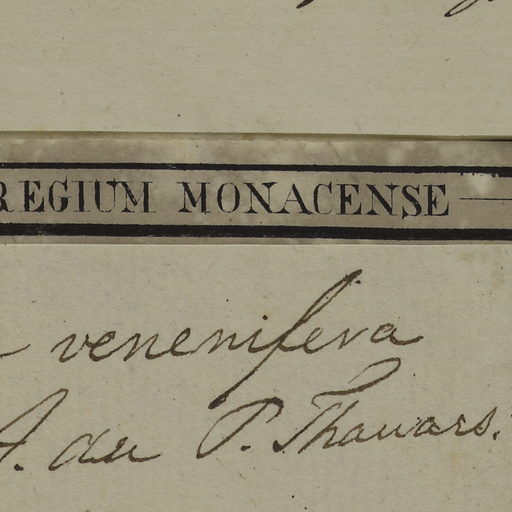 REGIUM MONACENSE
venenifera
A. du P. Thouars.